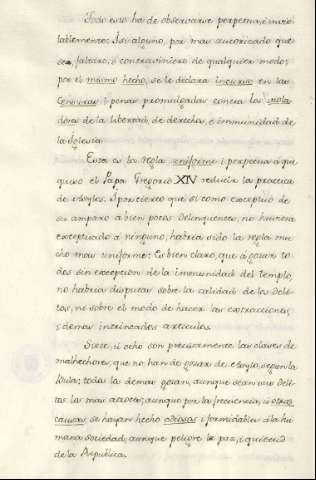 Todo esto ha de observarse perpetua, é invio-
lablemente: Si alguno, por mas autorizado que
sea, faltare, ó contraviniere de qualquier modo,
por el mismo hecho, se le declara incurso en las
Censuras, i penas promulgadas contra los viola
dores de la libertad, de derecho, e immunidad de
la Iglesia.
Esta es la regla uniforme i perpetua á que
quiso el Papa Gregorio XIV reducir la practica
de asylos. I por cierto que si como exceptuó de
su amparo á bien pocos delinquentes, no huviera
exceptuado á ninguno, habria sido la regla mu
cho mas uniforme: Es bien claro, que á gozar to
dos sin excepcion de la immunidad del templo,
no habria disputas sobre la calidad de los Deli
tos, ni sobre el modo de hacer las extracciones,
i demas intrincados articulos.
Siete, ú ocho son precisamente las clases de
malhechores, que no han de gozar de el asylo, segun la
Bula; todas las demas gozan, aunque sean sus Deli
tos los mas atroces; aunque por la frecuencia, ú otras
causas se hayan hecho odiosas i formidables á la hu
mana Sociedad; aunque peligre la paz, i quietud
de la Republica.